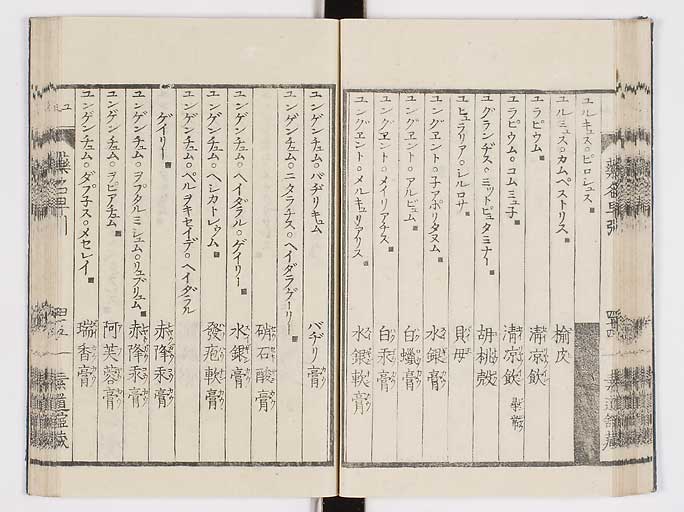 ユルキュス。ピロシュス
ユルミュス。カムペストリス 楡皮
ユラピウム 清凉飲
ユラピウム。コムミュ子 清凉飲
ユグランヂス。ミットピュタミナー 胡桃殻
ヒュラリア。シルロサ 貝母
ユングヱント。子アポリタヌム 水銀膏
ユングヱント。アルビュム 白蠟膏
ユングヱント。メイリアチス 白汞膏
ユングヱント。メルキュリアリス 水銀軟膏
ユンゲンチュム。バヂリキュム バヂリ膏
ユンゲンチュム。ニタラチス。ヘイダラゲーリー
硝石酸膏
ユンゲンチュム。ヘイダラル。ゲイリー 水銀膏
ユンゲンチュム。ヘレカトレゥム 發疱軟膏
ユンゲンチュム。ペルヲキセイデ。ヘイダラル
ゲイリー 赤降汞膏
ユンゲンチュム。ヲプタルミシュム。リュブリュム 赤降汞膏
ユンゲンチュム。ヲピアチュム 阿芙蓉膏
ユンゲンチュム。ダプ子ス。メセレイ 瑞香膏